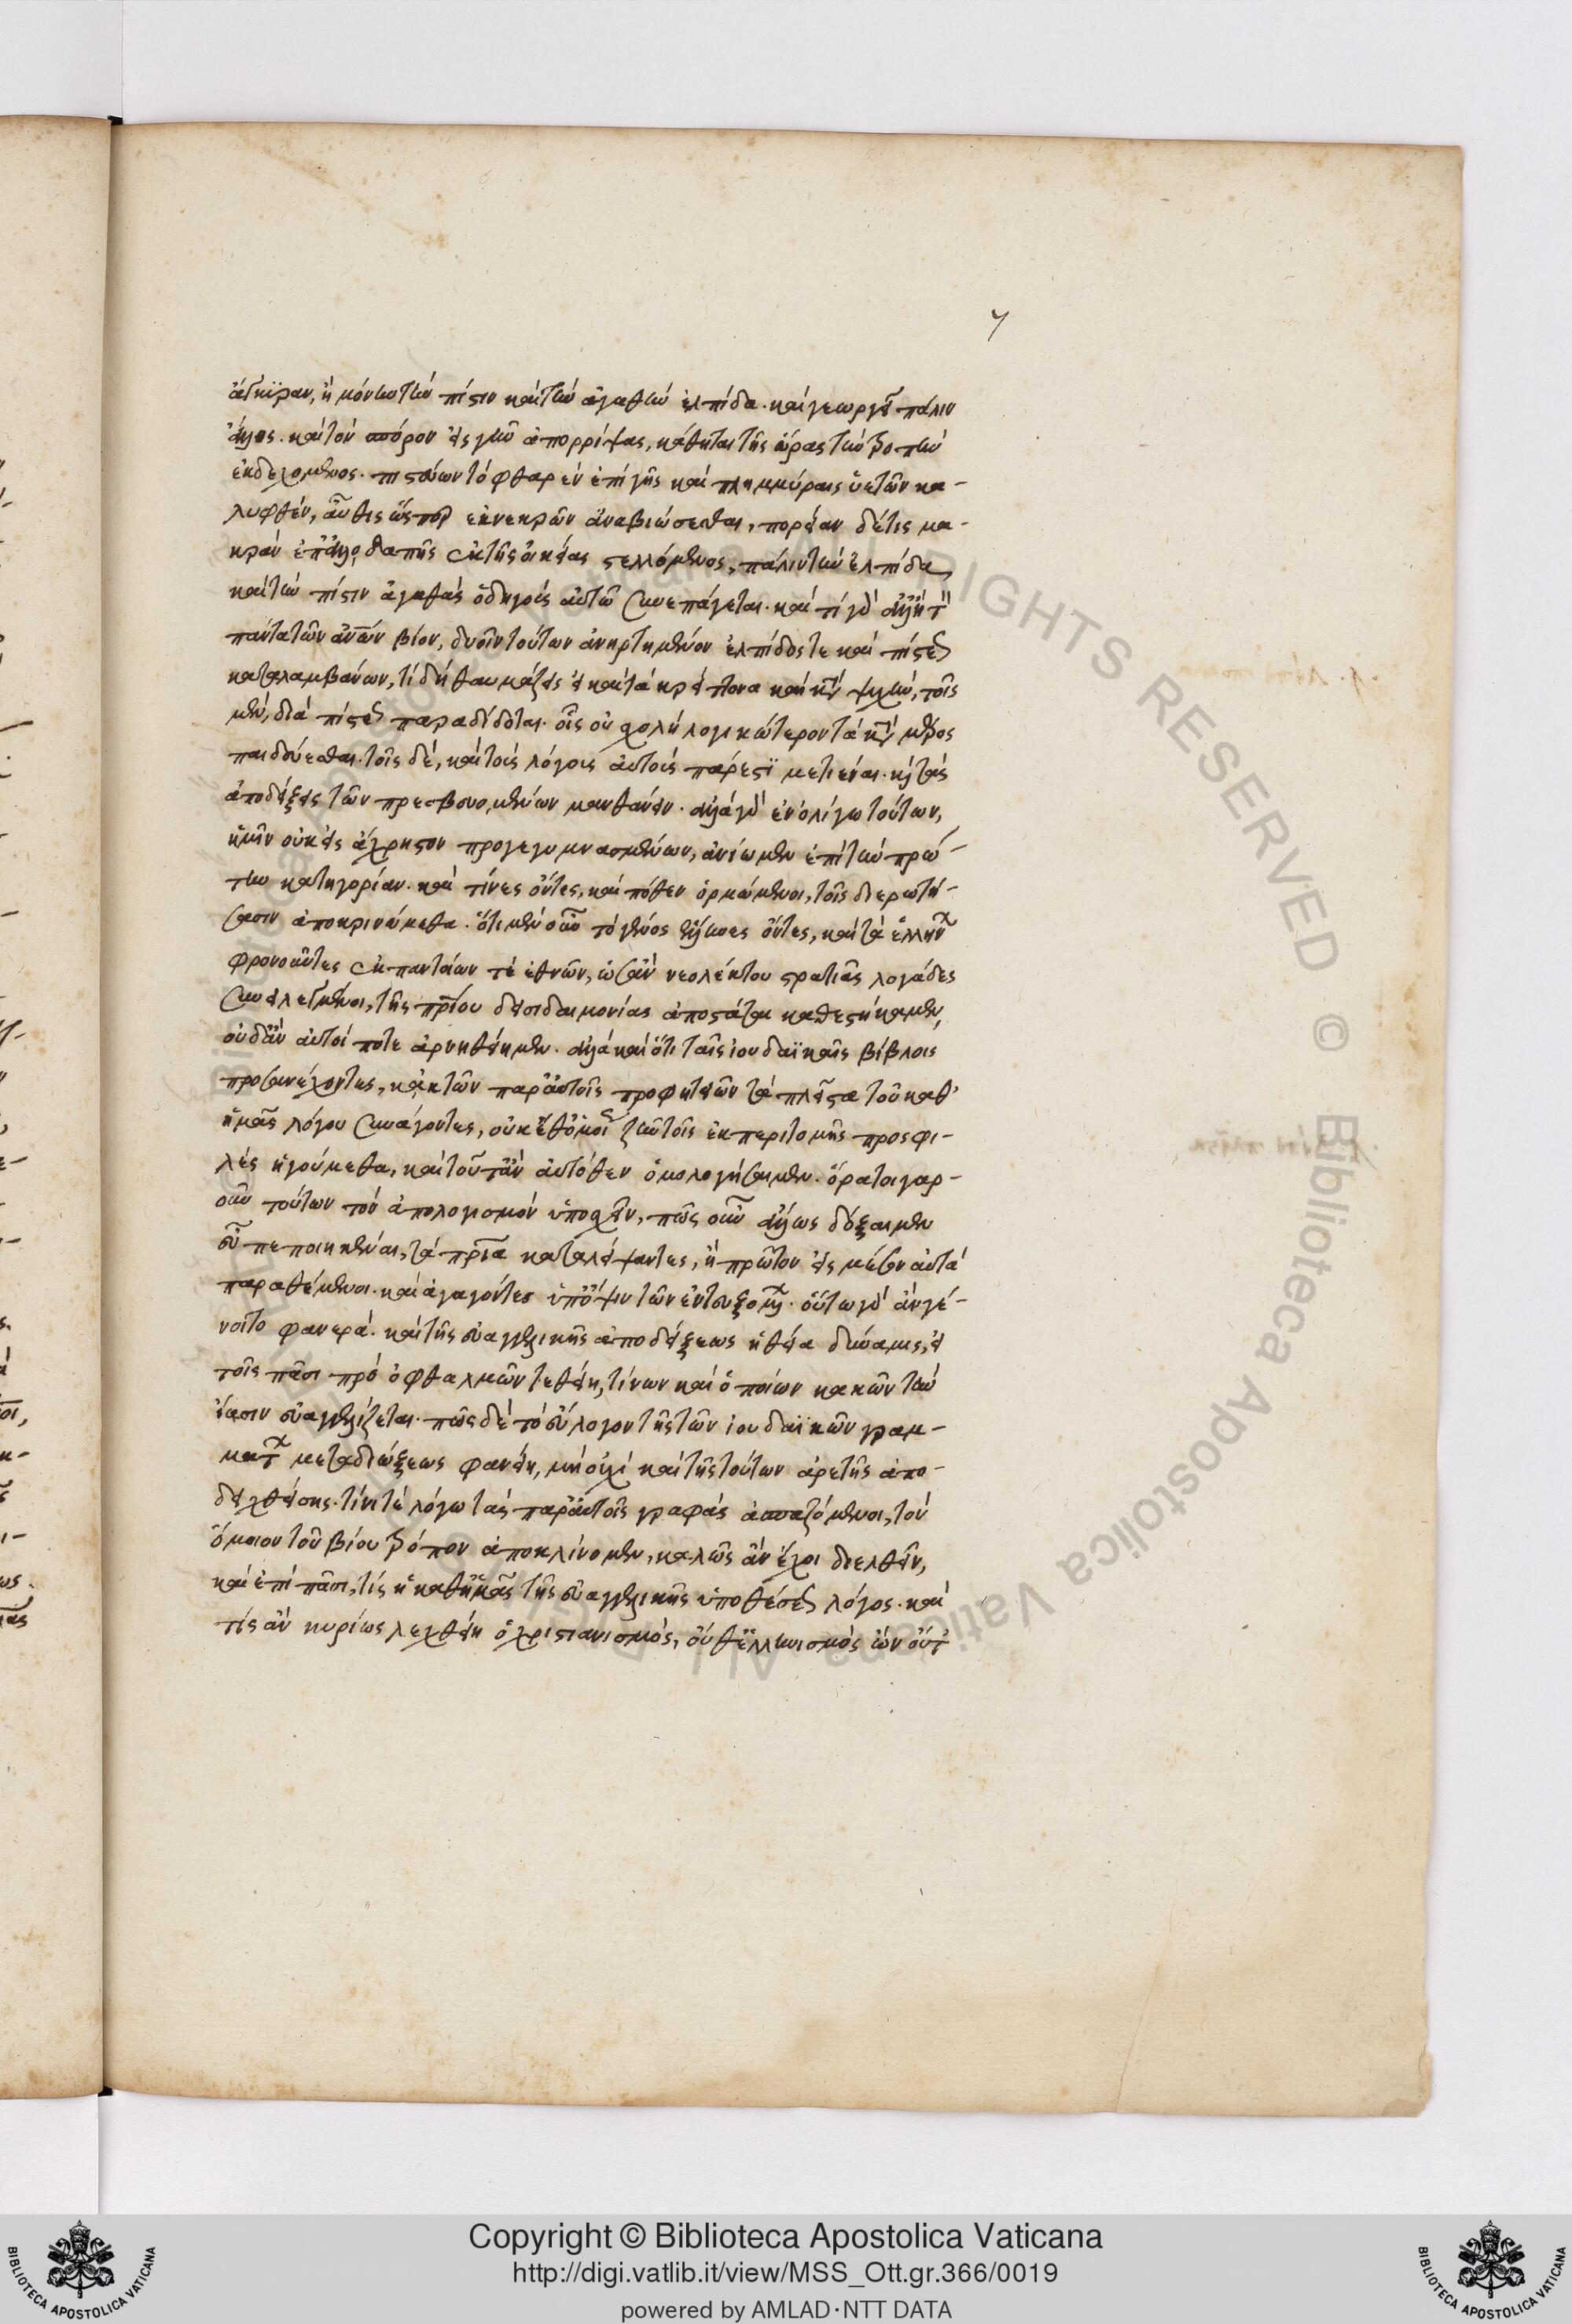 7
ἄγκυραν, ἢ μόνην τὴν πίστιν καὶ τὴν ἀγαθὴν ἐλπίδα. καὶ γεωργεῖ πάλιν
ἄλλος. καὶ τὸν σπόρον εἰς γῆν ἀπορρίψας, κάθηται τῆς ὥρας τὴν τροπὴν
ἐκδεχόμενος. πιστεύων τὸ φθαρὲν ἐπὶ γῆς καὶ πλημμύραις ὑετῶν κα-
λυφθέν, αὖθις ὥσπερ ἐκ νεκρῶν ἀναβιώσεσθαι, πορείαν δέ τις μα-
κρὰν ἐπ' ἀλλοδαπῆς ἐκ τῆς οἰκείας στελλόμενος, πάλιν τὴν ἐλπίδα,
καὶ τὴν πίστιν ἀγαθὰς ὁδηγοὺς αὐτῷ συνεπάγεται. καὶ τί γὰρ ἀλλ' ἢ τὸν
πάντα τῶν ἀνων βίον, δυοῖν τούτων ἀνηρτημένον ἐλπίδος τε καὶ πίστεως
καταλαμβάνων, τί δὴ θαυμάζεις εἰ καὶ τὰ κρείττονα καὶ κατὰ ψυχήν, τοῖς
μὲν, διὰ πίστεως παραδίδοται. οἷς οὐ σχολὴ λογικώτερον τὰ κατὰ μέρος
παιδεύεσθαι. τοῖς δὲ, καὶ τοὺς λόγους αὐτοὺς πάρεστι μετιέναι. καὶ τὰς
ἀποδείξεις τῶν πρεσβευομένων μανθάνειν. ἀλλὰ γὰρ ἐν ὀλίγῳ τούτων,
ἡμῖν οὐκ εἰς ἄχρηστον προγεγυμνασμένων, ἀνίωμεν ἐπὶ τὴν πρώ-
την κατηγορίαν. καὶ τίνες ὄντες, καὶ πόθεν ὁρμώμενοι, τοῖς διερωτή-
σασιν ἀποκρινώμεθα. ὅτι μὲν οὖν τὸ γένος ἕλληνες ὄντες, καὶ τὰ ἑλλήνων
φρονοῦντες ἐκ παντοίων τε ἐθνῶν, ὡσὰν νεολέκτου στρατιᾶς λογάδες
συνειλεγμένοι, τῆς πρίου δεισιδαιμονίας ἀποστάται καθεστήκαμεν,
οὐδ' ἂν αὐτοί ποτε ἀρνηθείημεν. ἀλλὰ καὶ ὅτι ταῖς ἰουδαϊκαῖς βίβλοις
προσανέχοντες, κἀκ τῶν παρ' αὐτοῖς προφητειῶν τὰ πλεῖστα τοῦ καθ'
ἡμᾶς λόγου συνάγοντες, οὐκέθ' ὁμοίως ζῆν τοῖς ἐκ περιτομῆς προσφι-
λὲς ἡγούμεθα, καὶ τοῦτ' ἂν αὐτόθεν ὁμολογήσαιμεν. ὥρα τοιγαρ-
οῦν τούτων τὸν ἀπολογισμὸν ὑποσχεῖν, πῶς οὖν ἄλλως δόξαιμεν
εὖ πεποιηκέναι, τὰ πρια καταλείψαντες, ἢ πρῶτον εἰς μέσον αὐτὰ
παραθέμενοι. καὶ ἀγαγόντες ὑπ' ὄψιν τῶν ἐντευξομένων. οὕτω γὰρ ἂν γέ-
νοιτο φανερὰ. καὶ τῆς εὐαγγελικῆς ἀποδείξεως ἡ θεία δύναμις, εἰ
τοῖς πᾶσι πρὸ ὀφθαλμῶν τεθείη, τίνων καὶ ὁποίων κακῶν τὴν
ἴασιν εὐαγγελίζεται. πῶς δὲ τὸ εὔλογον τῆς τῶν ἰουδαϊκῶν γραμ-
μάτων μεταδιώξεως φανείη, μὴ οὐχὶ καὶ τῆς τούτων ἀρετῆς ἀπο-
δειχθείσης. τίνι τε λόγῳ τὰς παρ' αὐτοῖς γραφὰς ἀσπαζόμενοι, τὸν
ὅμοιον τοῦ βίου τρόπον ἀποκλίνομεν, καλῶς ἂν ἔχοι διελθεῖν,
καὶ ἐπὶ πᾶσι, τίς ἡ καθ' ἡμᾶς τῆς εὐαγγελικῆς ὑποθέσεως λόγος. καὶ
τίς ἂν κυρίως λεχθείη ὁ χριστιανισμός, οὔθ' ἑλληνισμὸς ὢν οὔτε
Copyright © Biblioteca Apostolica Vaticana
http://digi.vatlib.it/view/MSS_Ott.gr.366/0019
powered by AMLAD·NTT DATA